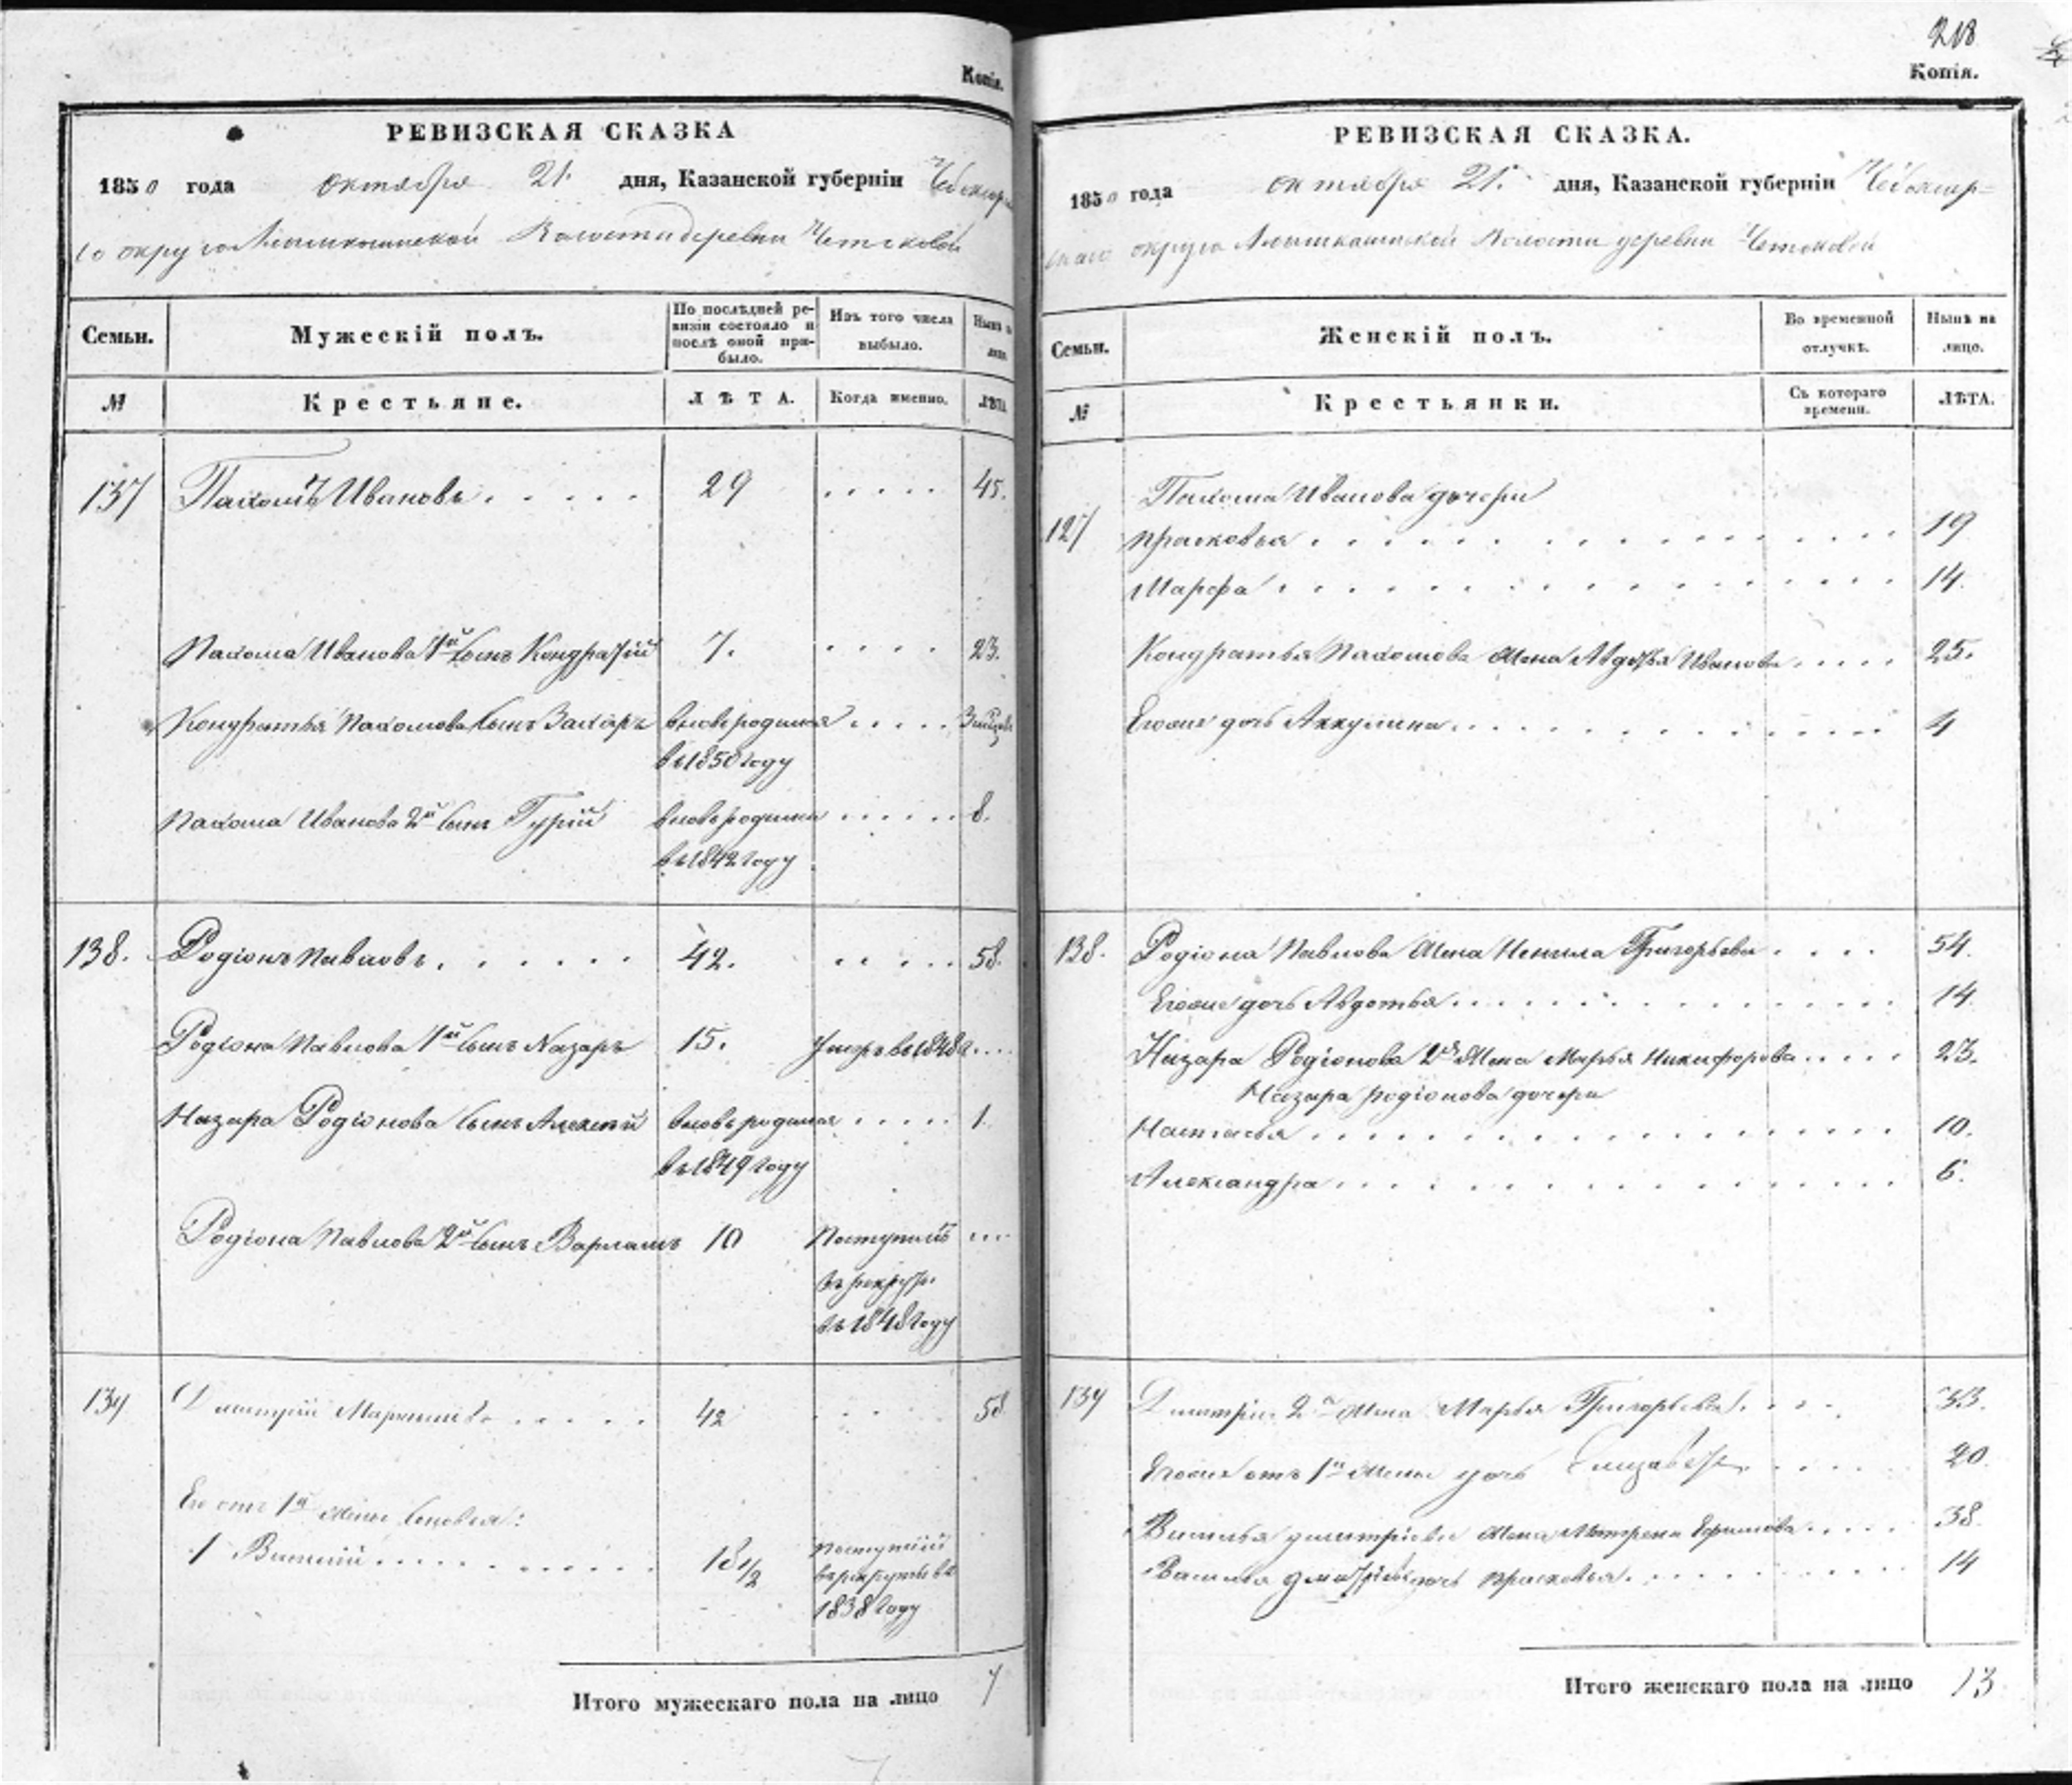 Копія.
РЕВИЗСКАЯ СКАЗКА
1850 года октября 21. дня, Казанской губерніи Чебоксар
го округа волости деревни
Семьи. Мужескій полъ. По послѣдней ревизіи состояло и послѣ оной прибыло. Изъ того числа выбыло. Нынѣ на лицо
№ Крестьяне. ЛѢТА. Когда именно. ЛѢТА
137 Пахомъ Ивановъ . . . . . 29 . . . . . 45.
Пахома Иванова 1й сынъ Кондратій 7. . . . . 23.
Кондратья Пахомова сынъ Захаръ вновь родился . . . . .
въ 1850 году
Пахома Иванова 2й сынъ Гурій вновь родился . . . . . 8.
въ 1842 году
138. Родіонъ Павловъ . . . . . . 42. . . . . . 58.
Родіона Павлова 1й сынъ Назаръ 15. Умеръ въ 1848 г. . . .
Назара Родіонова сынъ Алексѣй вновь родился . . . . . 1.
въ 1849 году
Родіона Павлова 2й сынъ Варламъ 10 Поступилъ . . .
въ рекрут.
въ 1848 году
139 Дмитрій . . . . . 42 . . . . 58
Его отъ 1й жены сыновья:
1 Василій . . . . . . . . . . 18 1/2 поступилъ
въ рекруты въ
1838 году
Итого мужескаго пола на лицо 7
218
Копія.
РЕВИЗСКАЯ СКАЗКА.
1850 года октября 21. дня, Казанской губерніи Чебоксар=
скаго округа волости деревни
Семьи. Женскій полъ. Во временной отлучкѣ. Нынѣ на лицо.
№ Крестьянки. Съ котораго времени. ЛѢТА.
Пахома Иванова дочери
127 Прасковья . . . . . . . . . . . . . . . 19
Марфа . . . . . . . . . . . . . . . 14.
Кондратья Пахомова жена Авдотья Иванова . . . . 25.
Его же дочь Аккулина . . . . . . . . . . . . 4
138. Родіона Павлова жена Ненила Григорьева . . . . 54.
Его же дочь Авдотья . . . . . . . . . . . . 14.
Назара Родіонова 2я жена Марья Никифорова . . . . . 23.
Назара родіонова дочери
Настасья . . . . . . . . . . . . . . . 10.
Александра . . . . . . . . . . . . . . 6.
139 Дмитрія 2я жена Марья Григорьева . . . . 33.
Его же отъ 1й жены дочь Елизавета . . . . . 20.
Василья Дмитріева жена Матрена Ефимова . . . . . 38.
Василья Дмитріева дочь Прасковья . . . . . . . . . 14
Итого женскаго пола на лицо 13